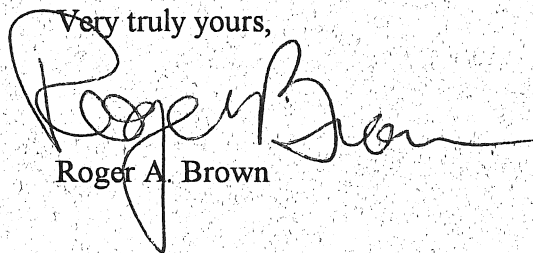 Very truly yours,
Roger Brown
Roger A. Brown